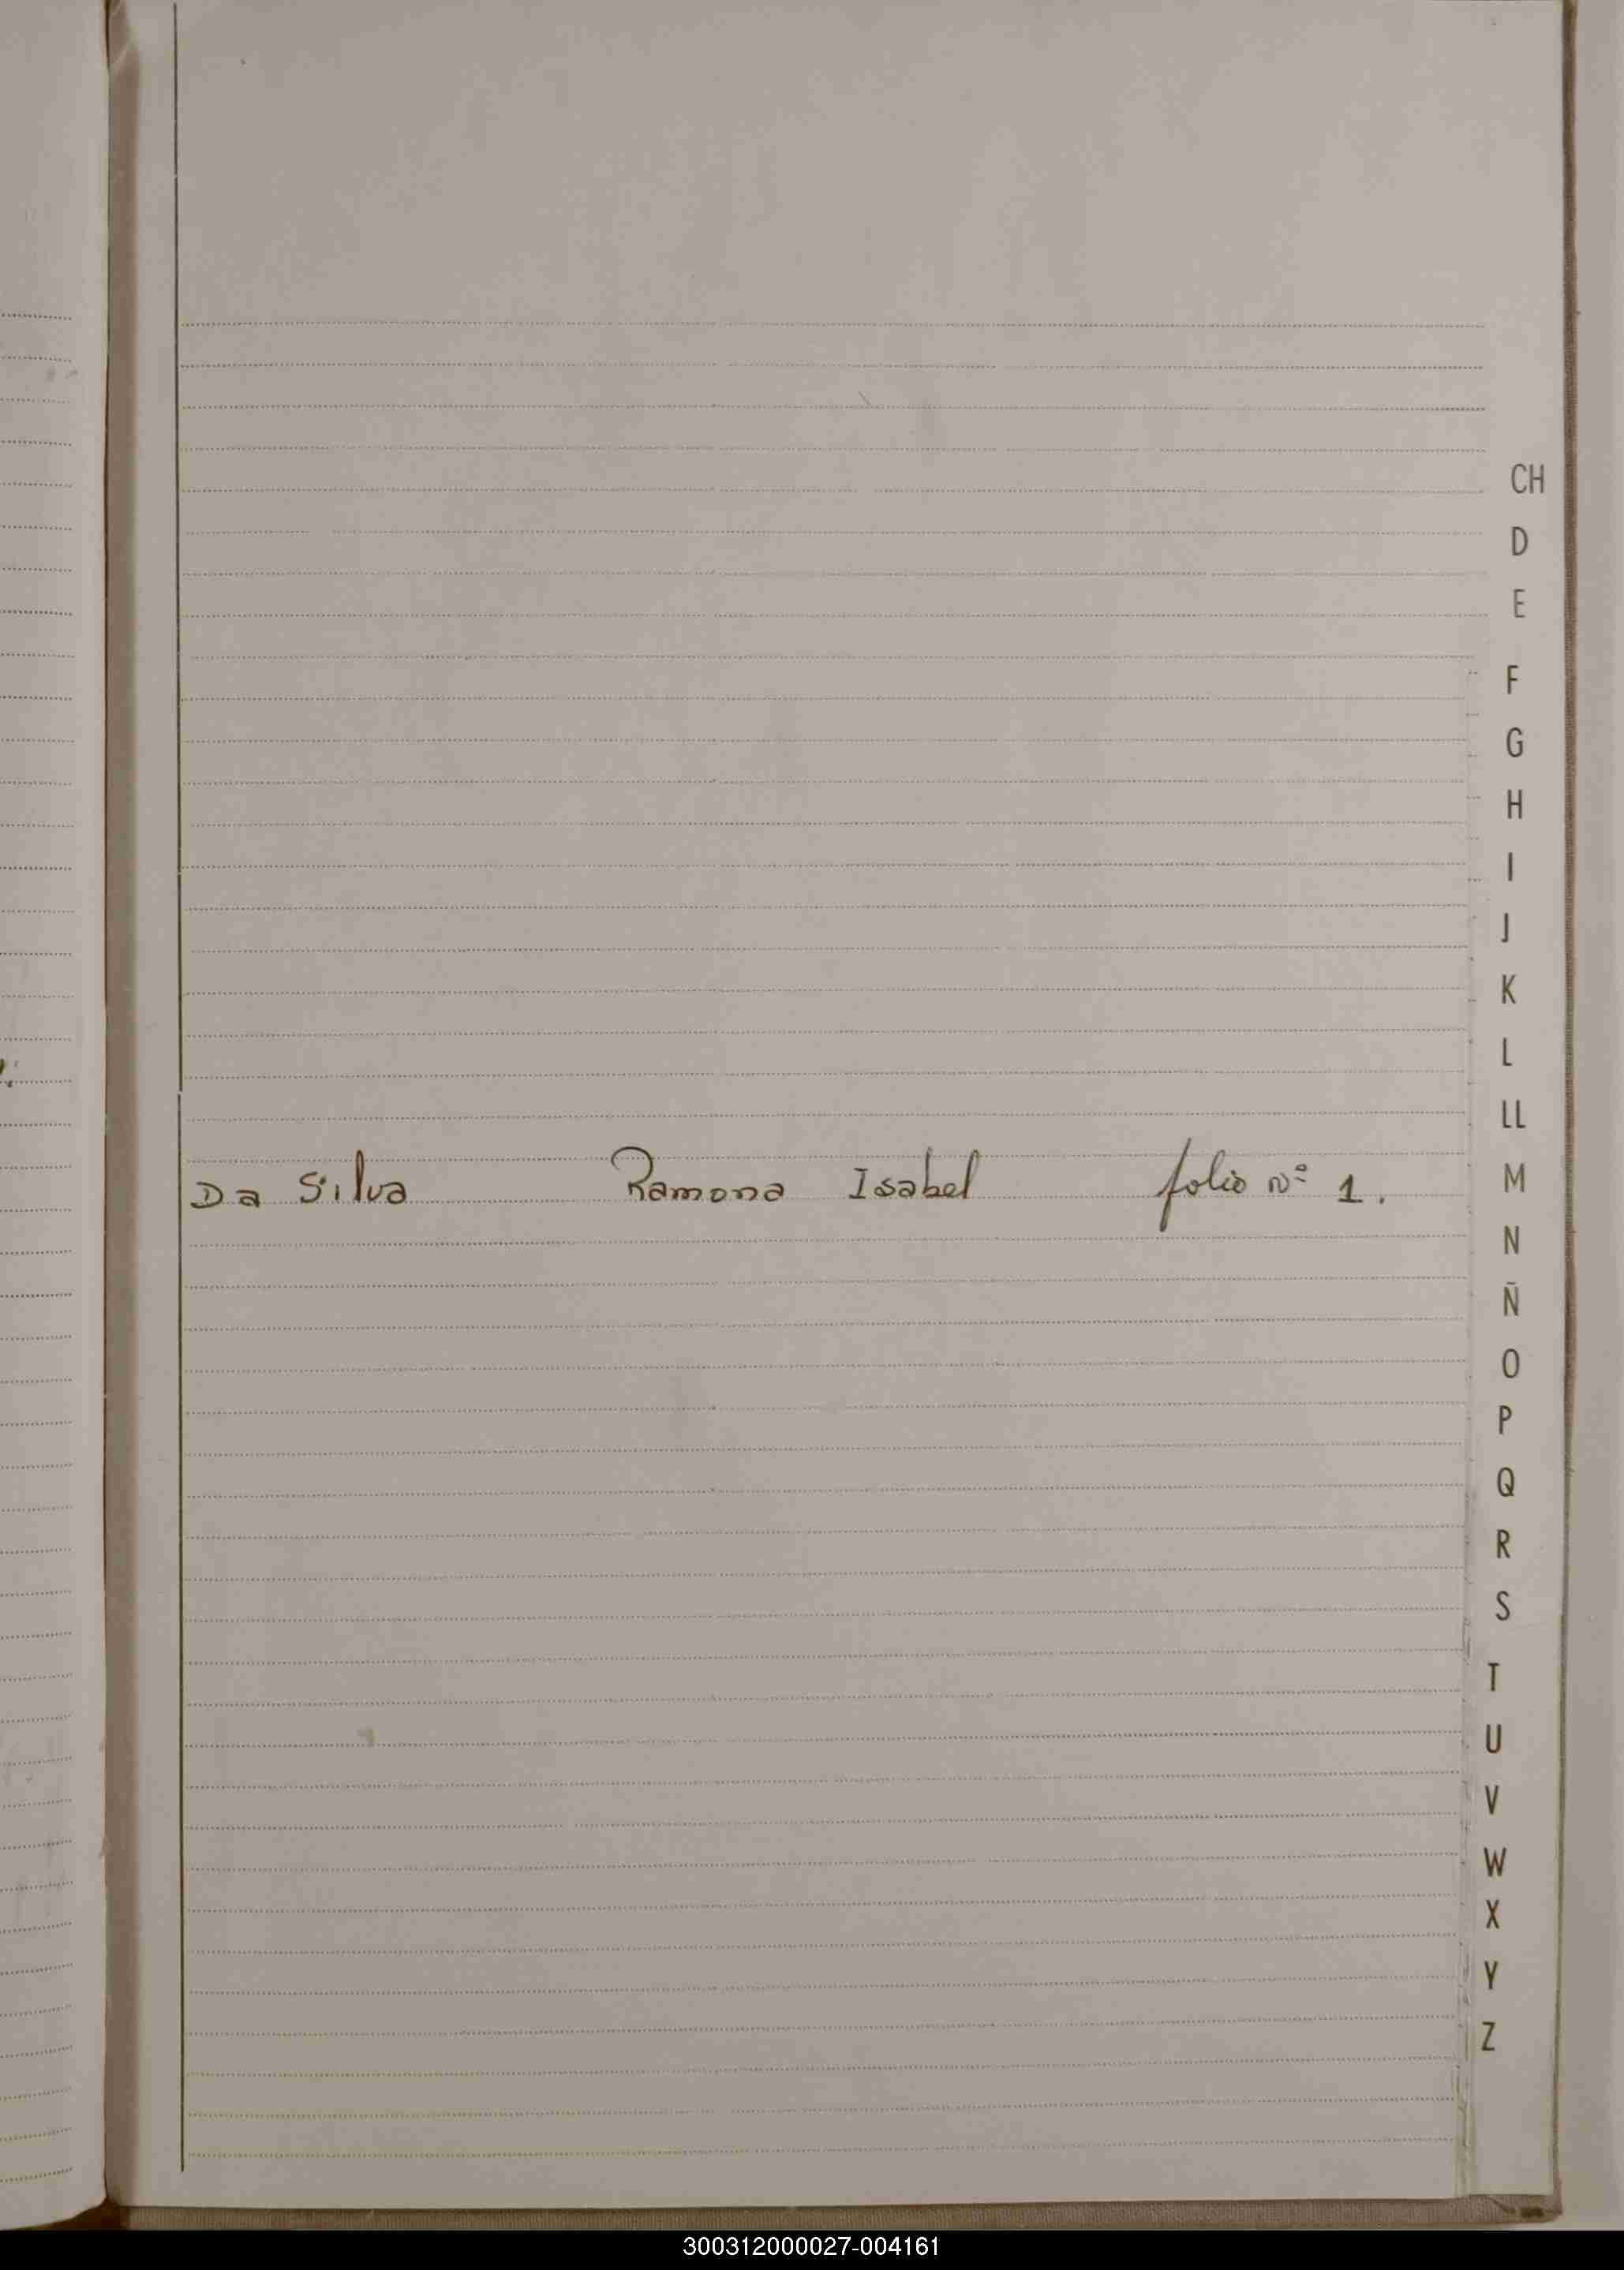 CH
D
E
F
G
H
I
J
K
L
LL
Da Silva Ramona Isabel folio Nº 1.
M
N
Ñ
O
P
Q
R
S
T
U
V
W
X
Y
Z
300312000027-004161